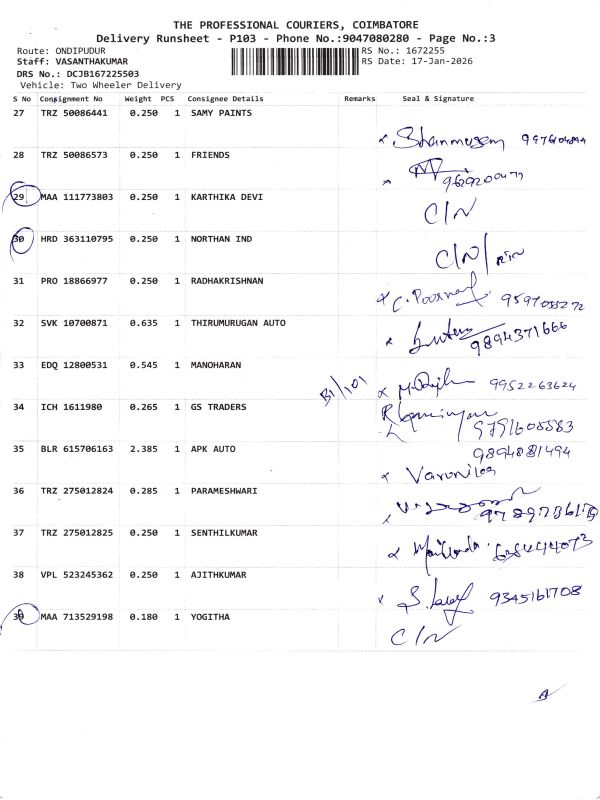 THE PROFESSIONAL COURIERS, COIMBATORE
Delivery Runsheet - P103 - Phone No.:9047080280 - Page No.:3
Route: ONDIPUDUR RS No.: 1672255
Staff: VASANTHAKUMAR RS Date: 17-Jan-2026
DRS No.: DCJB167225503
Vehicle: Two Wheeler Delivery
S No Consignment No Weight PCS Consignee Details Remarks Seal & Signature
27 TRZ 50086441 0.250 1 SAMY PAINTS
28 TRZ 50086573 0.250 1 FRIENDS
29 MAA 111773803 0.250 1 KARTHIKA DEVI C/N
30 HRD 363110795 0.250 1 NORTHAN IND C/N/
31 PRO 18866977 0.250 1 RADHAKRISHNAN
32 SVK 10700871 0.635 1 THIRUMURUGAN AUTO 9894371666
33 EDQ 12800531 0.545 1 MANOHARAN B1/101 9952263624
34 ICH 1611980 0.265 1 GS TRADERS 9791608583
35 BLR 615706163 2.385 1 APK AUTO 9894881494
36 TRZ 275012824 0.285 1 PARAMESHWARI
37 TRZ 275012825 0.250 1 SENTHILKUMAR
38 VPL 523245362 0.250 1 AJITHKUMAR 9345161708
39 MAA 713529198 0.180 1 YOGITHA C/N